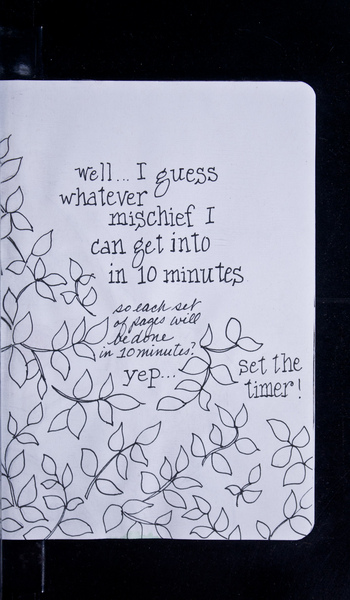 well... I guess
whatever
mischief I
can get into
in 10 minutes
so each set
of pages will
be done
in 10 minutes?
yep...
set the
timer!